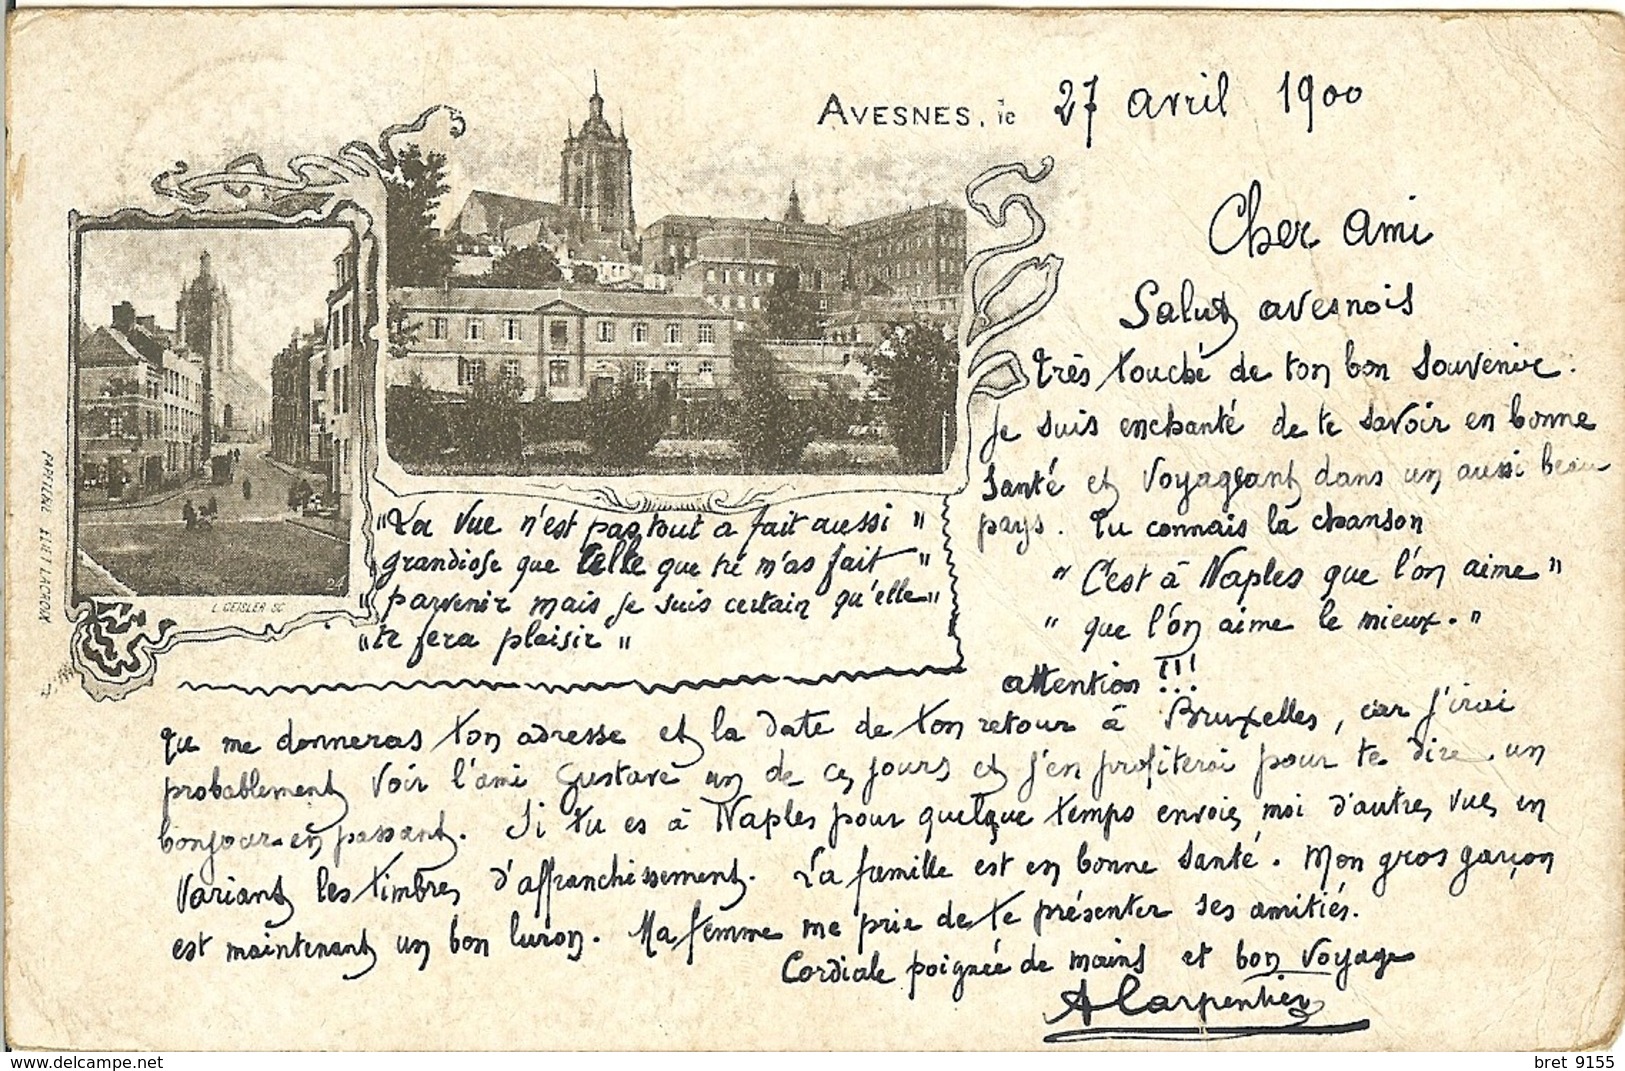 AVESNES, le 27 avril 1900
Cher ami
Salut avesnois
très touché de ton bon souvenir.
Je suis enchanté de te savoir en bonne
Santé et voyageant dans un aussi beau
pays. Tu connais la chanson
" C'est à Naples que l'on aime "
" que l'on aime le mieux. "
"La vue n'est pas tout a fait aussi "
grandiose que celle que tu m'as fait "
" parvenir mais je suis certain qu'elle "
"te fera plaisir "
attention !!!
que me donneras ton adresse et la date de ton retour à Bruxelles, car j'irai
probablement voir l'ami Gustave un de ces jours et j'en profiterai pour te dire un
bonjour en passant. Si tu es à Naples pour quelque temps envoie moi d'autres vues en
variant les timbres d'affranchissement. La famille est en bonne santé. Mon gros garçon
est maintenant un bon luron. Ma femme me prie de te présenter ses amitiés.
Cordiale poignée de mains et bon voyage
A Carpentier
PAPETERIE ELIET LACROIX
L. GEISLER SC
24
bret 9155